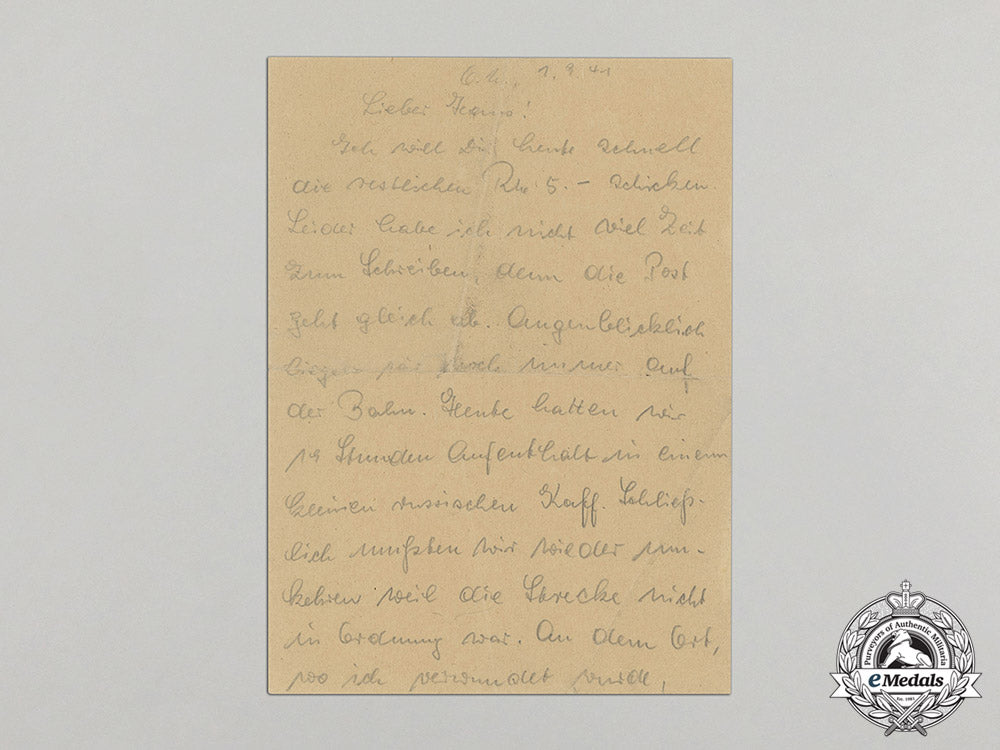 O.U., 1.9.41
Lieber Hans!
Ich will Dir heute schnell
die restlichen RM 5.- schicken.
Leider habe ich nicht viel Zeit
zum Schreiben, denn die Post
geht gleich ab. Augenblicklich
liegen wir noch immer auf
der Bahn. Heute hatten wir
14 Stunden Aufenthalt in einem
kleinen russischen Kaff. Schließ-
lich mußten wir wieder um-
kehren weil die Strecke nicht
in Ordnung war. An dem Ort,
wo ich verwundet wurde,
Purveyors of Authentic Militaria
eMedals
Est. 1985